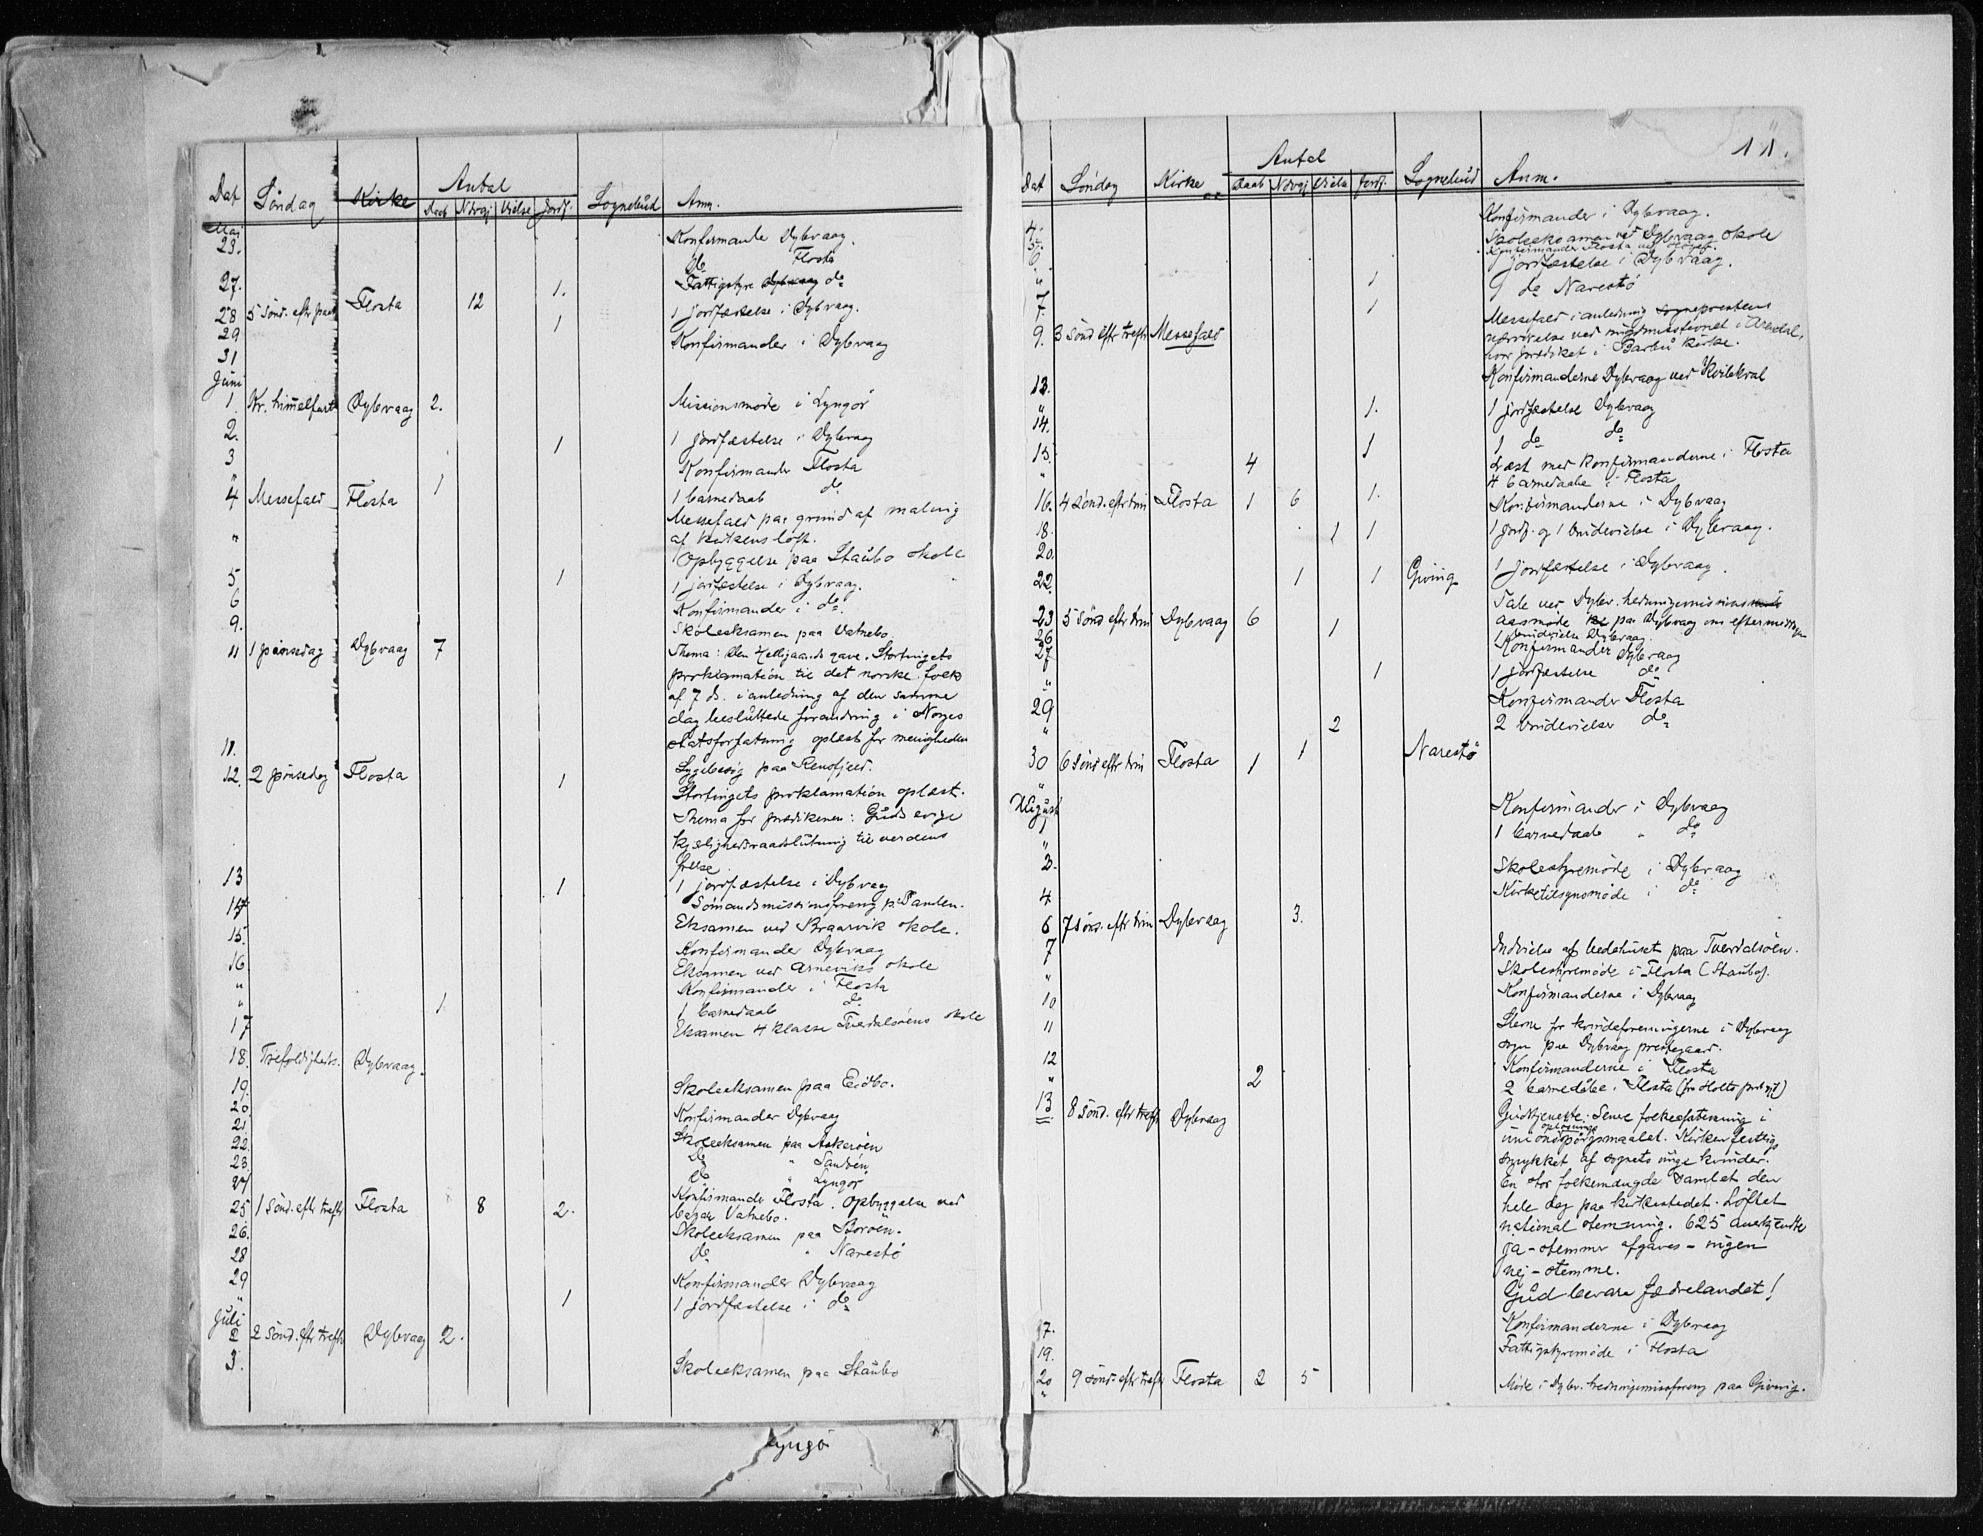 Antal
Dat Söndag Kirke Daab Ndvgj Vielse Jordf. Sognebud Anm.
Maj
23. Konfirmante Dybvaag.
do Flosta
27. 1. Fattigstyre Dybvaag do
28 5 Sönd. eftr paas Flosta 12 1 jordfæstelse i Dybvaag.
29 1
31 Konfirmander i Dybvaag
Juni
1. Kr. himmelfart Dybvaag 2. Missionsmøde i Lyngør
2.
3 1 1 jordfæstelse i Dybvaag
Konfirmander Flosta
" 1 1 barnedaab do
4 Messefald Flosta Messefald paa grund af maling
af kirkens loft.
" Opbyggelse paa Staubo skole
5. 1 1 jorfæstelse i Dybvaag.
6 Konfirmander i do.
9. Skoleeksamen paa Vatnebo.
11 1 pinsedag Dybvaag 7 Thema: Den Helligaands gave. Stortingets
proklamation til det norske folk
af 7 ds. i anledning af den samme
dag besluttede forandring i Norges
statsforfatning oplæst for menigheden
11. Sygebesøg paa Rensfjeld.
12. 2 pinsedag Flosta 1 Stortingets proklamation oplæst.
Thema for prædikenen: Guds evige
kjælighedsraadslutning til verdens
frelse.
13 1 1 jordfæstelse i Dybvaag
14 Sömandsmissionsforeng p. Sanden.
15. Eksamen ved Braarvik skole.
Konfirmander Dybvaag
16 Eksamen ved Arneviks skole
" Konfirmander i Flosta
" 1 1 barnedaab do
17 Eksamen 4 klasse Tverdalsøens skole
18. Trefoldigheds. Dybvaag.
19. Skoleeksamen paa Eidbo.
20.
21. Konfirmander Dybvaag
22. Skoleeksamen paa Askerøen
23. do " Sandøen
24 do " Lyngør
25 1 Sönd. eftr trefh Flosta 8 2. Konfirmande Flosta. Opbyggelse ved
bøgar Vatnebo.
26. Skoleeksamen paa Borøen.
28 do " Narestø
29 Konfirmander Dybvaag
" 1 1 jordfæstelse i do
Juli
2 2 Sönd. eftr trefh Dybvaag 2.
3. Skoleeksamen paa Staubo
Lyngø
11.
Antal
Dat Söndag Kirke Daab Ndvgj Vielse Jordf. Sognebud Anm.
4. Konfirmander i Dybvaag.
5. Skoleeksamen ved Dybvaag skole
6 Konfirmander Flosta
" 1 1 jordfæstelse i Dybvaag.
7. 1 1 do Narestö
9. 3 Sönd eftr trefh Messefald Messefald i anledning sogneprestens
nærværelse ved ungdomsstevnet i Arendal,
hvor prædiket i Barbu kirke.
13. Konfirmanderne Dybvaag ved Kvilekval
" 1. 1 jordfæstelse Dybvaag
14. 1 1 do do
15. Læst med konfirmanderne i Flosta
" 4 4 barnedaabe i Flosta
16. 4 Sönd. eftr trin Flosta 1 6 1. Konfirmanderne i Dybvaag
18. 1 1 1 Jordf. og 1 brudevielse i Dybvaag.
20.
22. 1 1 Gjeving 1 jordfæstelse i Dybvaag.
Tale ved Dybv. hedningemissions
23 5 Sönd eftr trin Dybvaag 6 aasmøde paa Dybvaag om eftermiddagen
26 1 1 brudevielse Dybvaag.
27 Konfirmander Dybvaag
" 1 1 jordfæstelse do
29 Konfirmander Flosta
" 2 2 brudevielser do
30 6 Sönd eftr trin Flosta 1 1 Narestö
"
August
1 Konfirmander i Dybvaag
" 1 barnedaab " do
2. Skolestyremøde i Dybvaag
4 Kirketilsynsmøde i do
6 7 sönd. eftr trin Dybvaag 3.
7 Indvielse af bedehuset paa Tverdalsöen.
" Skolestyremøde i Flosta (Staubo).
10 Konfirmanderne i Dybvaag
11 Stevne for kvindeforeningerne i Dybvaag
sogn paa Dybvaag prestegaard.
12 Konfirmanderne i Flosta
" 2 2 barnedåbe i Flosta (fra Holts prstgjl)
13 8 Sönd. eftr trefh Dybvaag Gudstjeneste. Senere folkeafstemning i
unions opløsnings spørgsmaalet. Kirken festlig
smykket af sognets unge kvinder.
En stor folkemængde samlet den
hele dag paa kirkestedet. Løftet
national stemning. 625 anerkjendte
ja-stemmer afgaves - ingen
nej-stemme.
Gud bevare fædrelandet!
17. Konfirmanderne i Dybvaag
19. Fattigstyremøde i Flosta
20 9 sönd. eftr trefh Flosta 2 5
" Møde i Dybv. hedningemissforeng paa Gjeving.